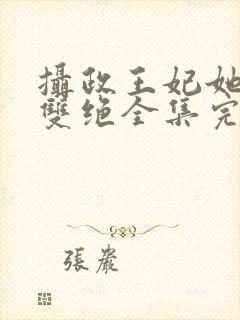 攝政王妃她
雙绝全集完
張嚴